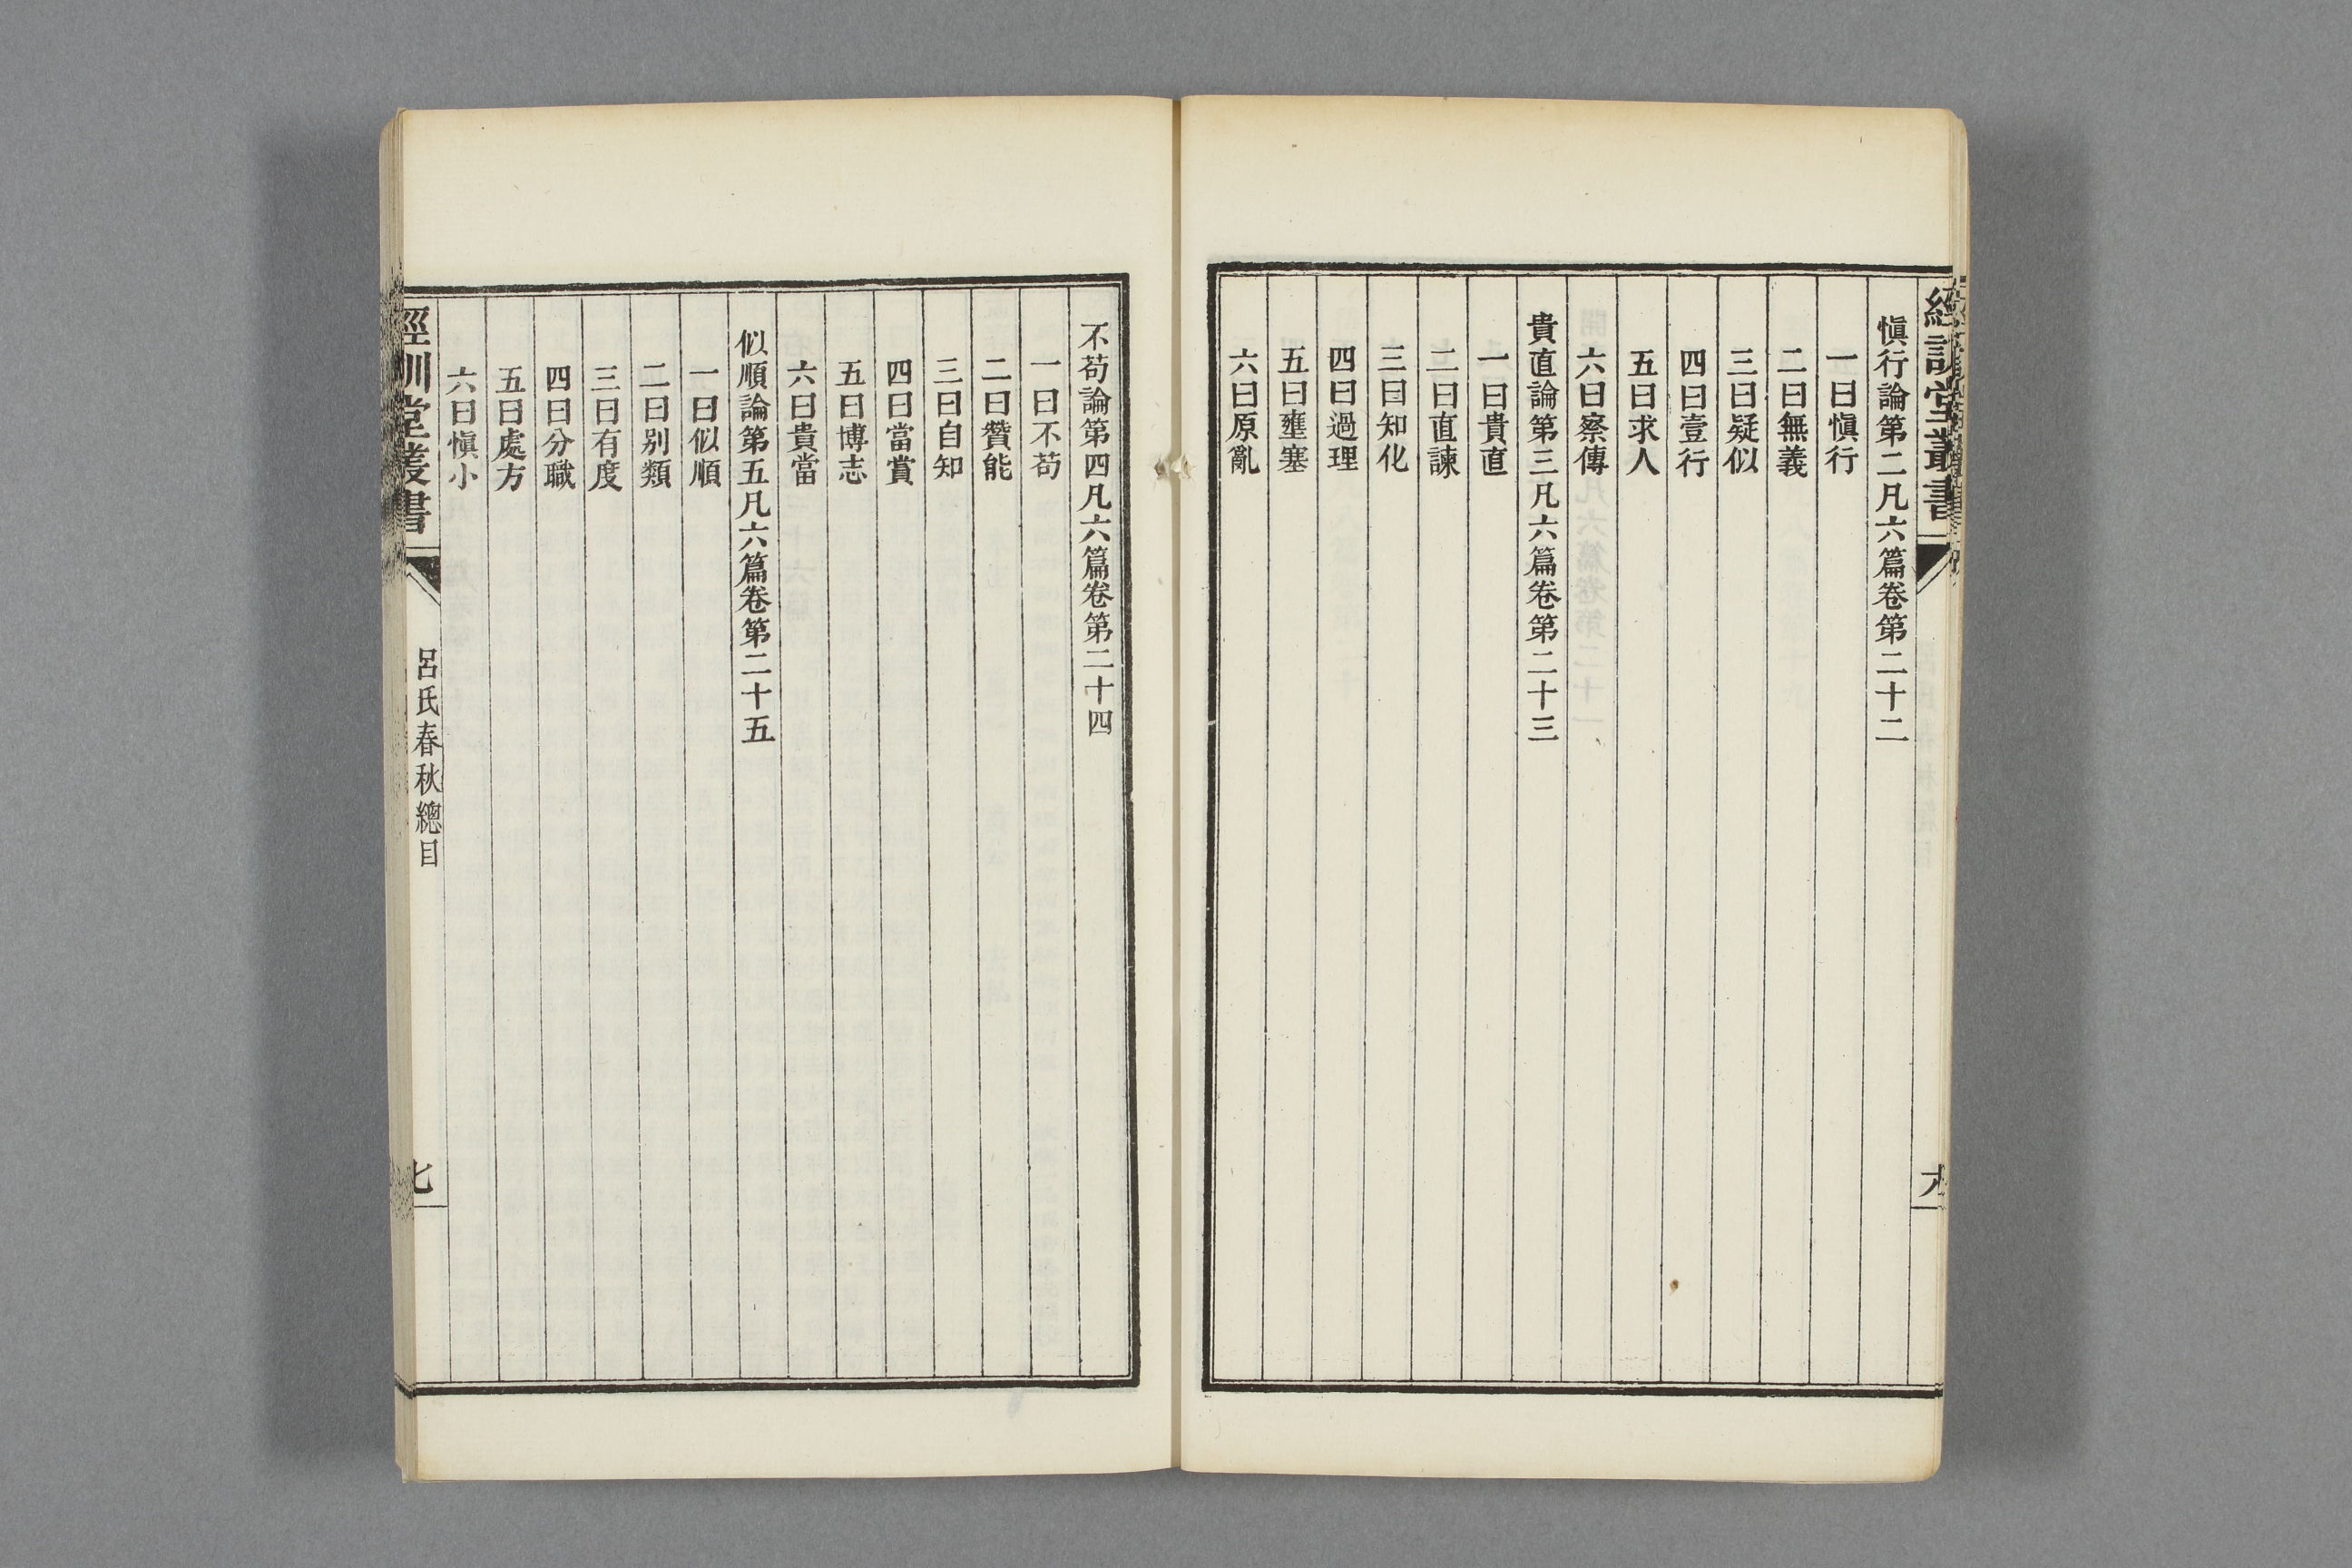 經訓堂叢書
慎行論第二凡六篇卷第二十二
一曰慎行
二曰無義
三曰疑似
四曰壹行
五曰求人
六曰察傳
貴直論第三凡六篇卷第二十三
一曰貴直
二曰直諫
三曰知化
四曰過理
五曰壅塞
六曰原亂
不苟論第四凡六篇卷第二十四
一曰不苟
二曰贊能
三曰自知
四曰當賞
五曰博志
六曰貴當
似順論第五凡六篇卷第二十五
一曰似順
二曰别類
三曰有度
四曰分職
五曰處方
六曰慎小
經訓堂叢書
呂氏春秋總目
七